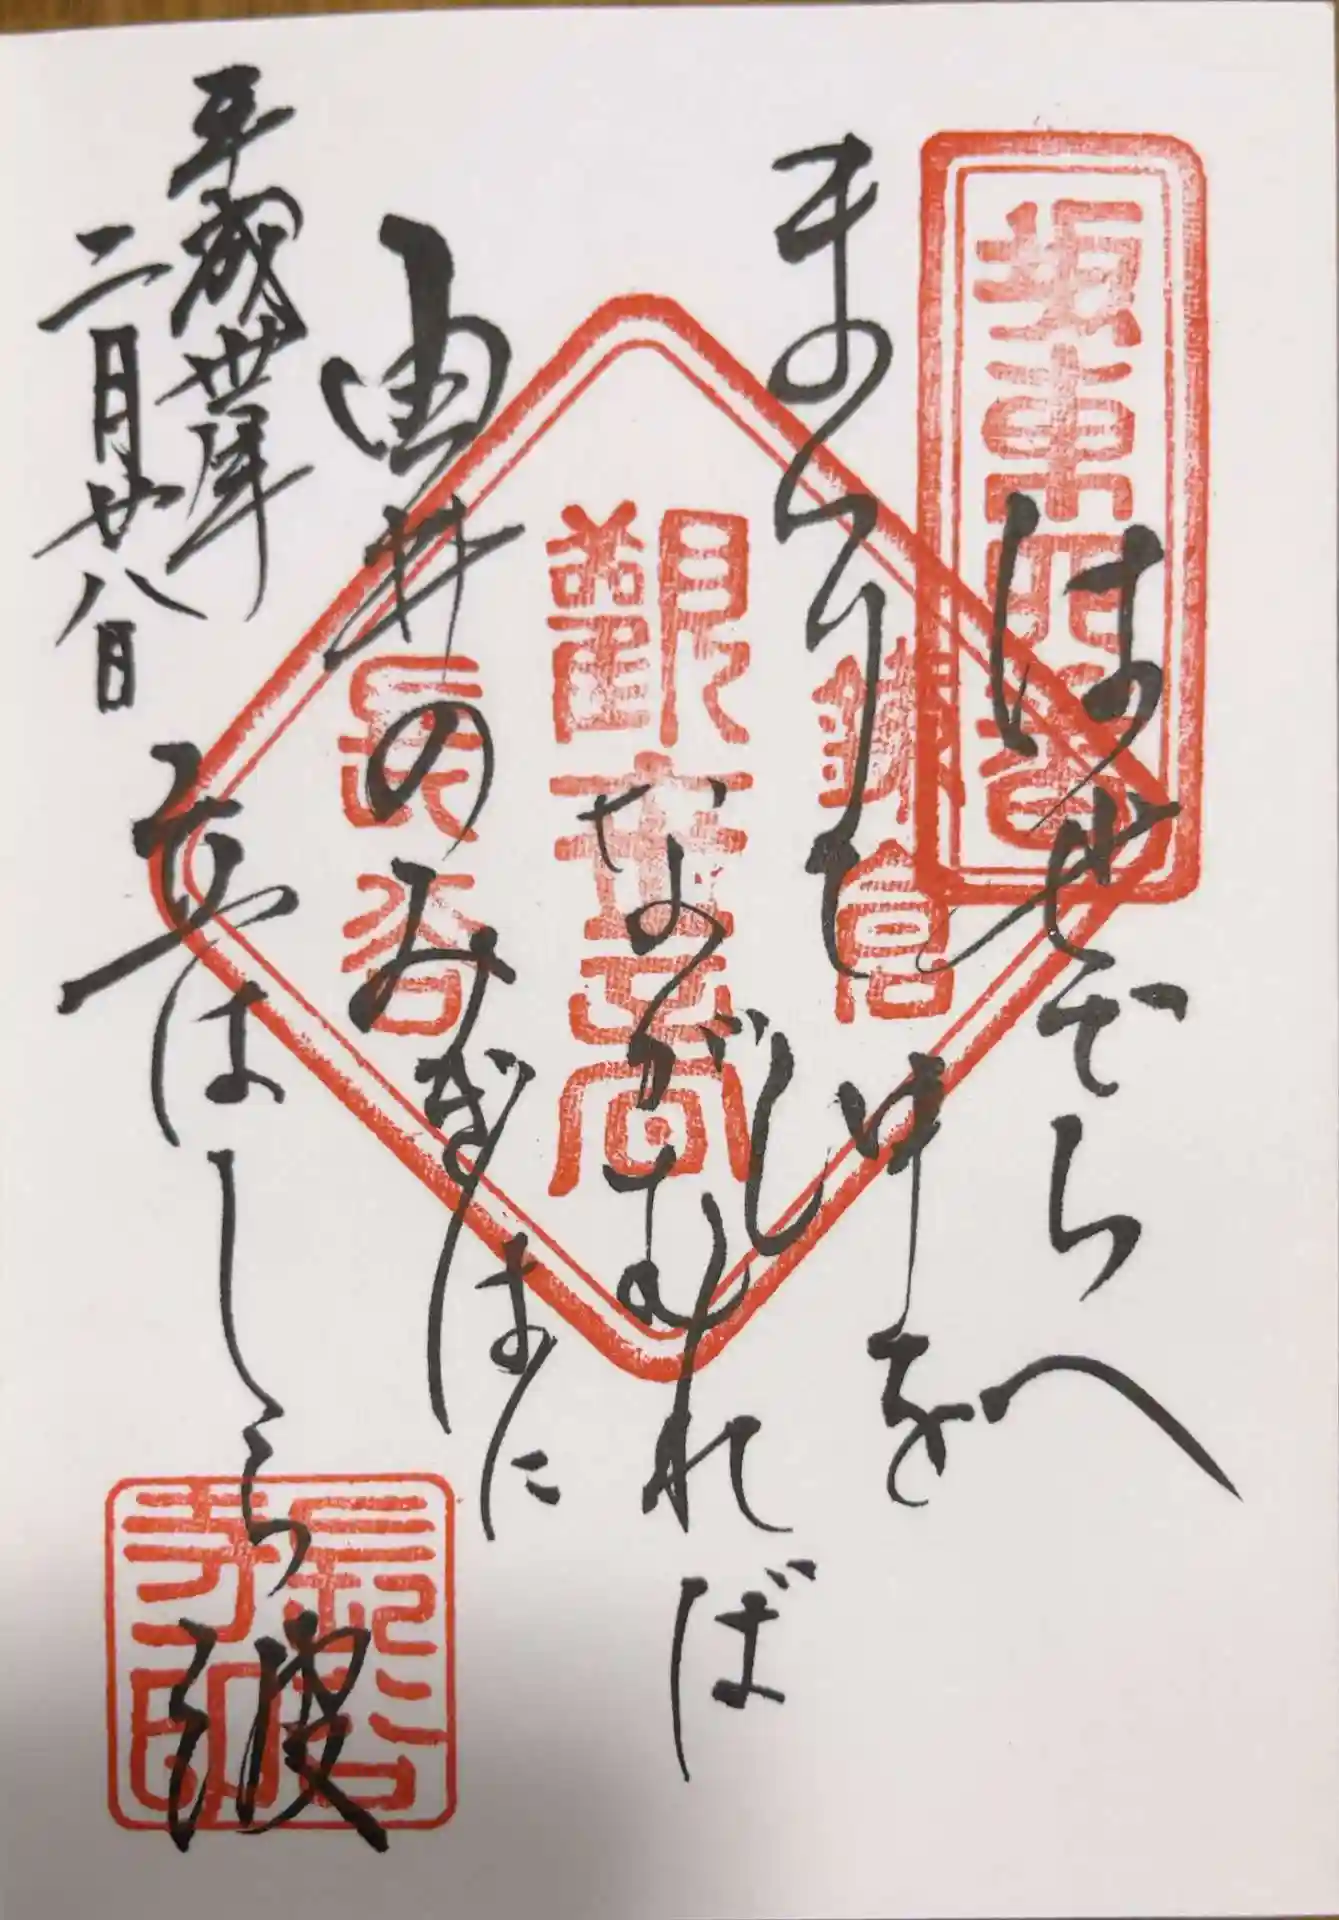 坂東四番
はせでらへ
まゐりて沖を
ながむれば
由井のみぎはに
立はしら波
平成丗年
二月廿八日
鎌倉
觀世音
長谷
長谷
寺印